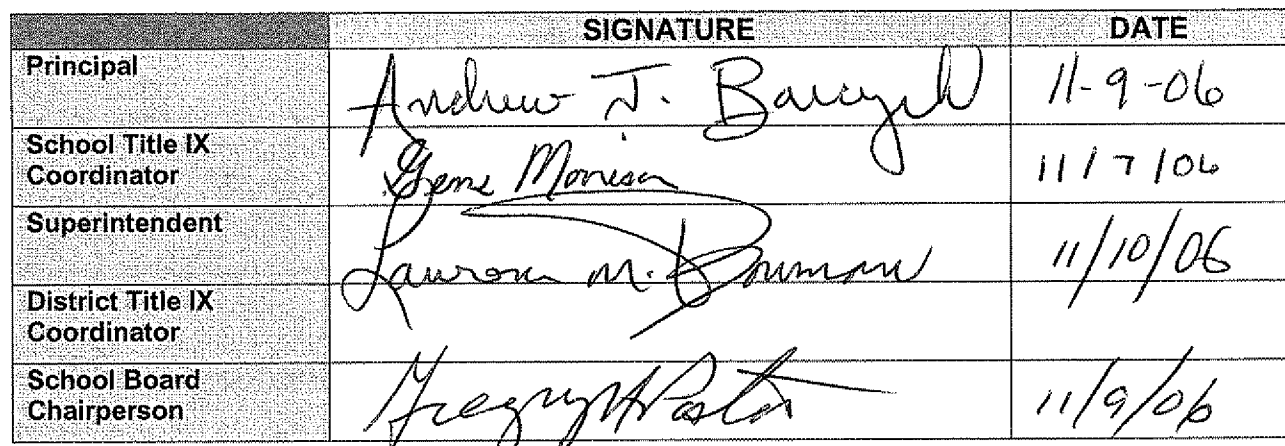 SIGNATURE DATE
Principal Andrew J. 11-9-06
School Title IX
Coordinator Gene Morison 11/7/06
Superintendent M. Bowman 11/10/06
District Title IX
Coordinator
School Board
Chairperson Gregory 11/9/06